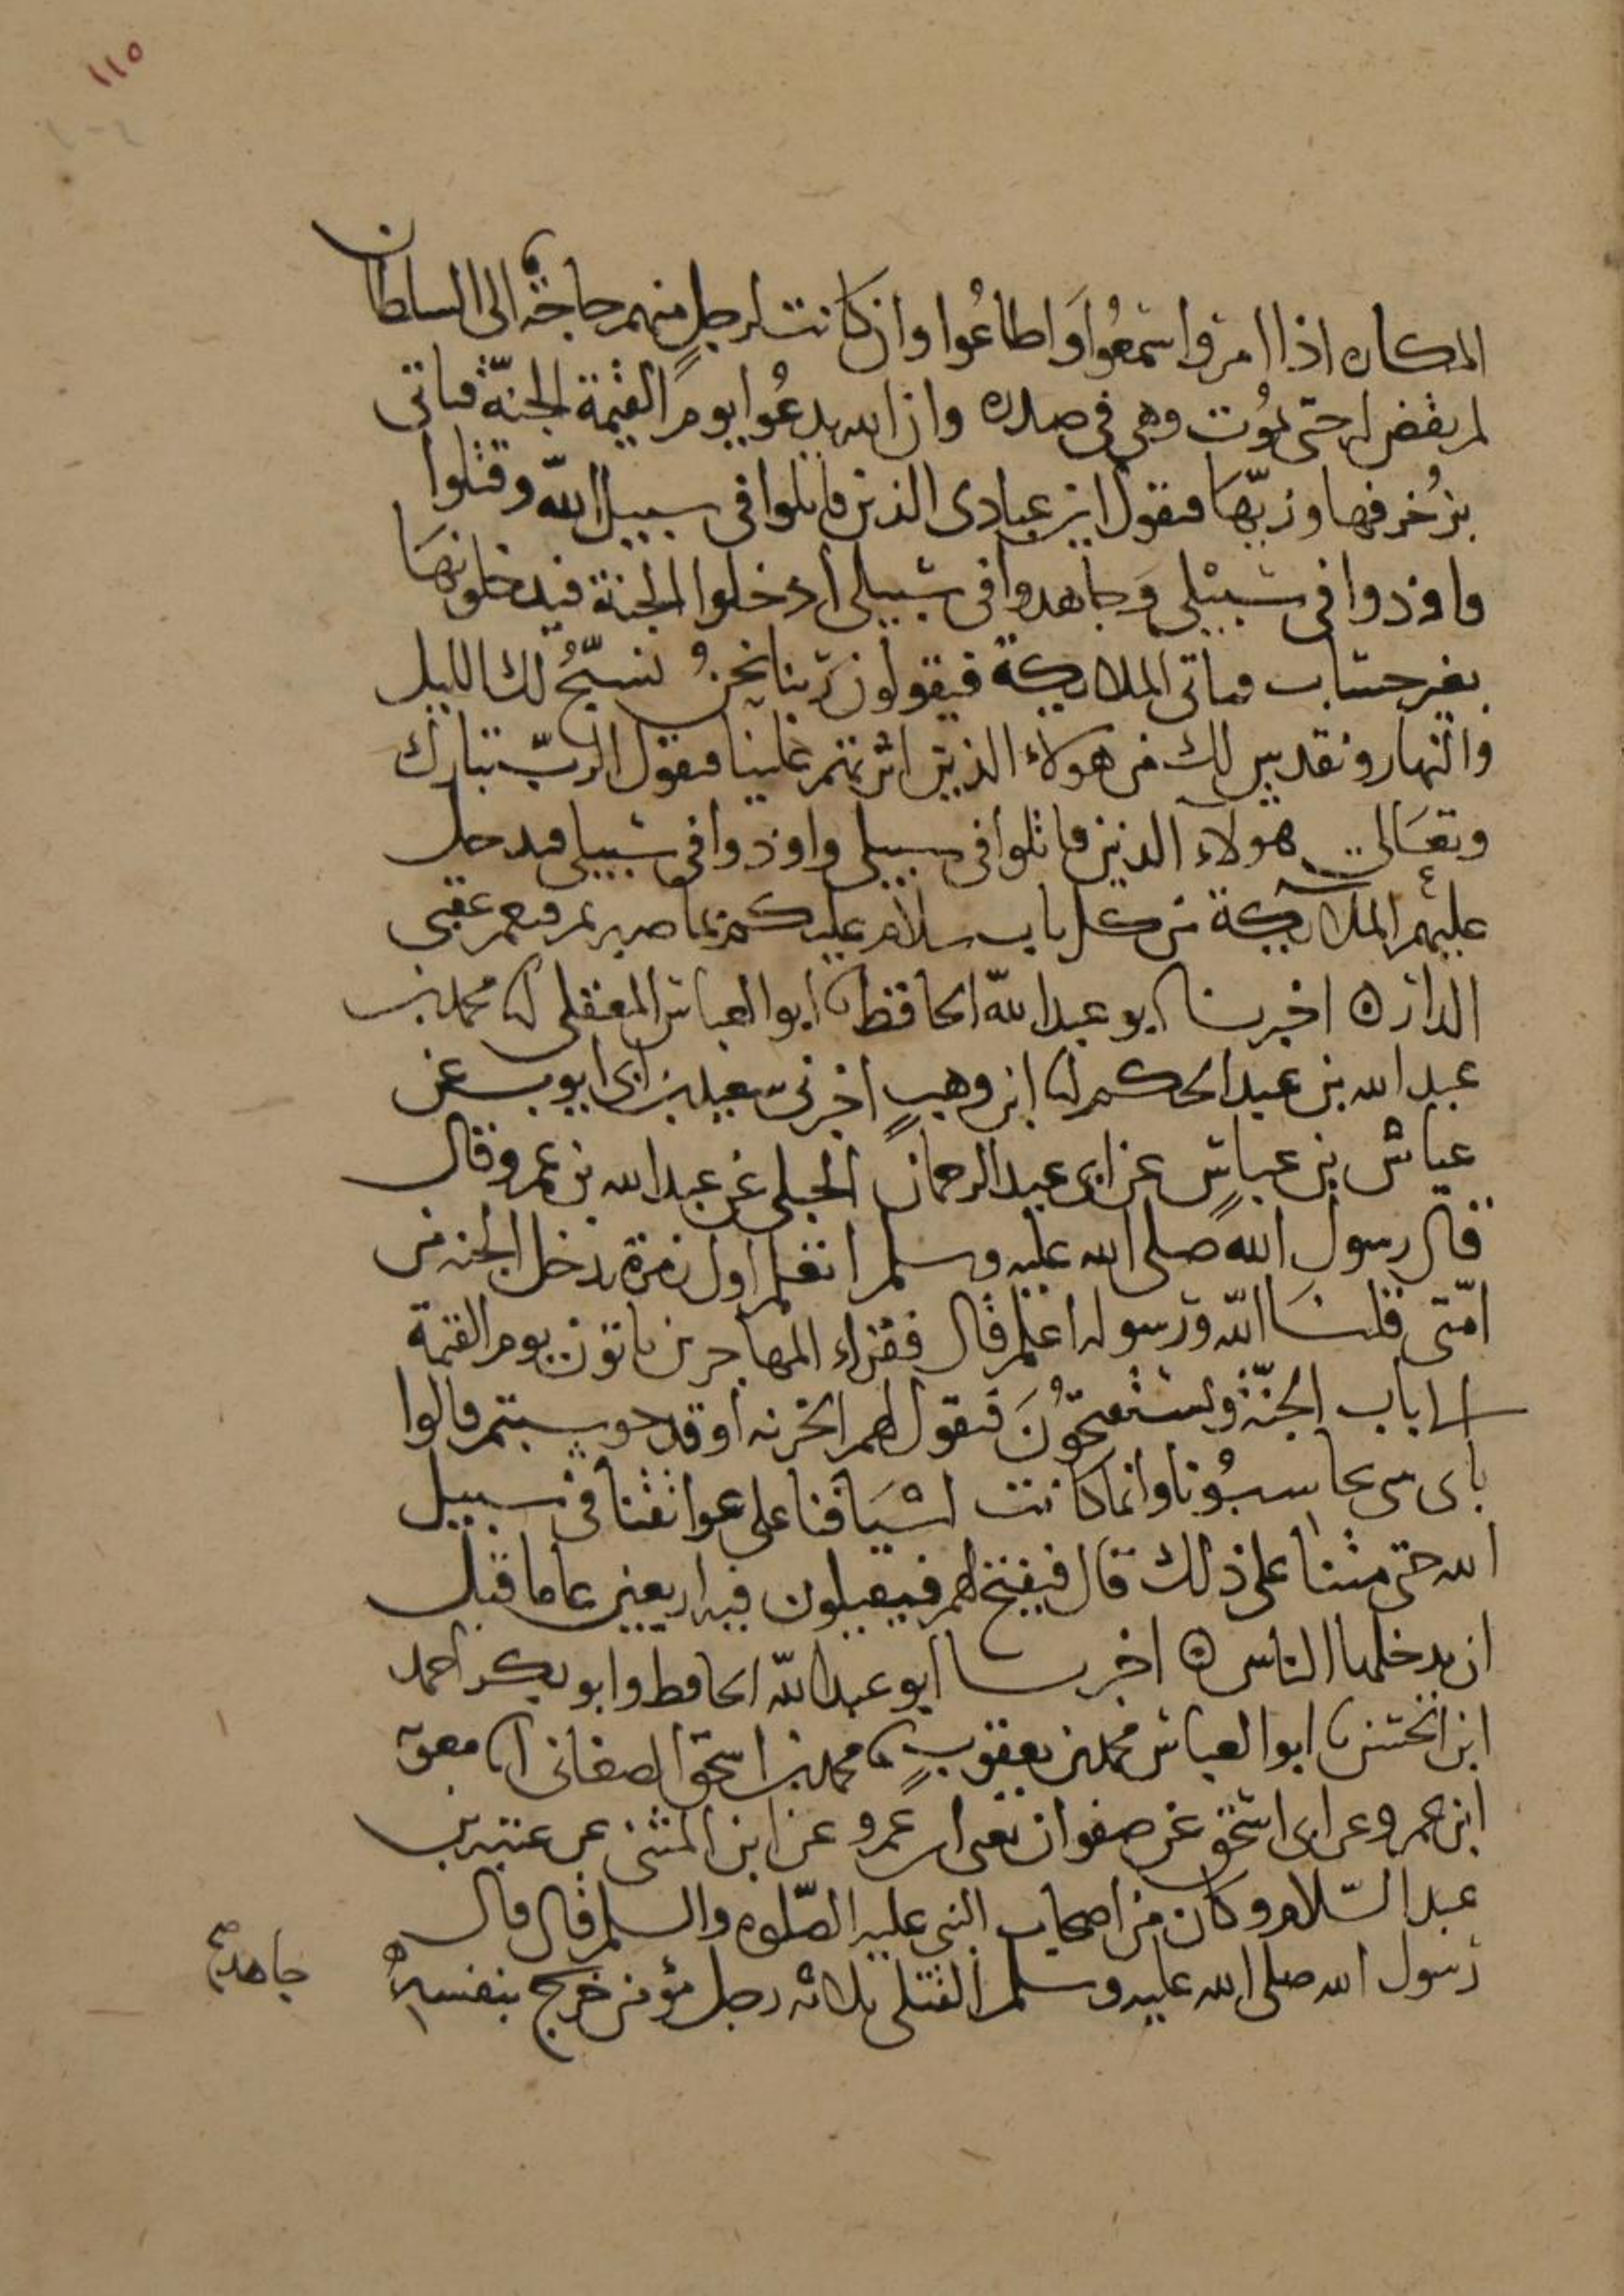 ١١٥
المكاره اذا امروا سمعُوا واطاعُوا وان كانت لرجلٍ منهم حاجة الى السلطان
لم يقض له حتى يموُت وهي في صدره وان الله يدعُوا يوم القيمة الجنّة فتاتي
بزُخرفها وزيّها فيقول اين عبادى الذين قاتلوا في سبيل الله وقتلوا
واوذوا في سبيلي وَجاهدوا في سبيلي ادخلوا الجنة فيدخلونهَا
بغير حساب فتاتي الملايكة فيقولون ربنا نحنُ نسبّحُ لك الليل
والنهار ونقدس لك من هولاء الذين اثرتهم علينا فيقول الربّ تبارك
وتعَالى هولاء الذين قاتلوا في سبيلي واوذوا في سبيلي فيدخل
عليهم الملايكة من كل باب سلام عليكم بما صبرتم فنعم عقبى
الدار ٥ اخبرنا ابو عبد الله الحافظ نا ابوا العباس المعقلي نا محمد بن
عبد الله بن عبد الحكم انا ابن وهبٍ اخبرني سعيد بن ابى ايوب عن
عياش بن عباسٍ عن ابى عبد الرحمان الحبلى عن عبد الله بن عمرو قال
قال رسول الله صلى الله عليه وسلم اتعلم اول زمرة تدخل الجنه من
امّتى قلت الله ورسوله اعلم قال فقراء المهاجرين ياتون يوم القيمة
الى باب الجنّة ويستفتحُونَ فيقول لهم الخزنه أوقد حوسبتم قالوا
باى شى تحاسبُونا وانما كانت اسيَافنا على عواتقنا في سبيل
الله حتى متنا على ذلك قال فيفتح لهم فيقيلون فيه اربعين عاما قبل
ان يدخلها الناس ٥ اخبرنا ابو عبد الله الحافظ وابو بكر احمد
ابن الحسن نا ابوا العباس محمد بن يعقوبٍ نا محمد بن اسحق الصغانى انا معوية
ابن عمرو عن ابى اسحق عن صفوان يعنى ابن عمرو عن ابن المثنى عن عتبه بن
عبد السّلام وكان من اصحاب النبي عليه الصّلوه والسلم قال قال
رسول الله صلى الله عليه وسلم القتلى ثلاثه رجل مؤمن خرج بنفسه
جاهد صح